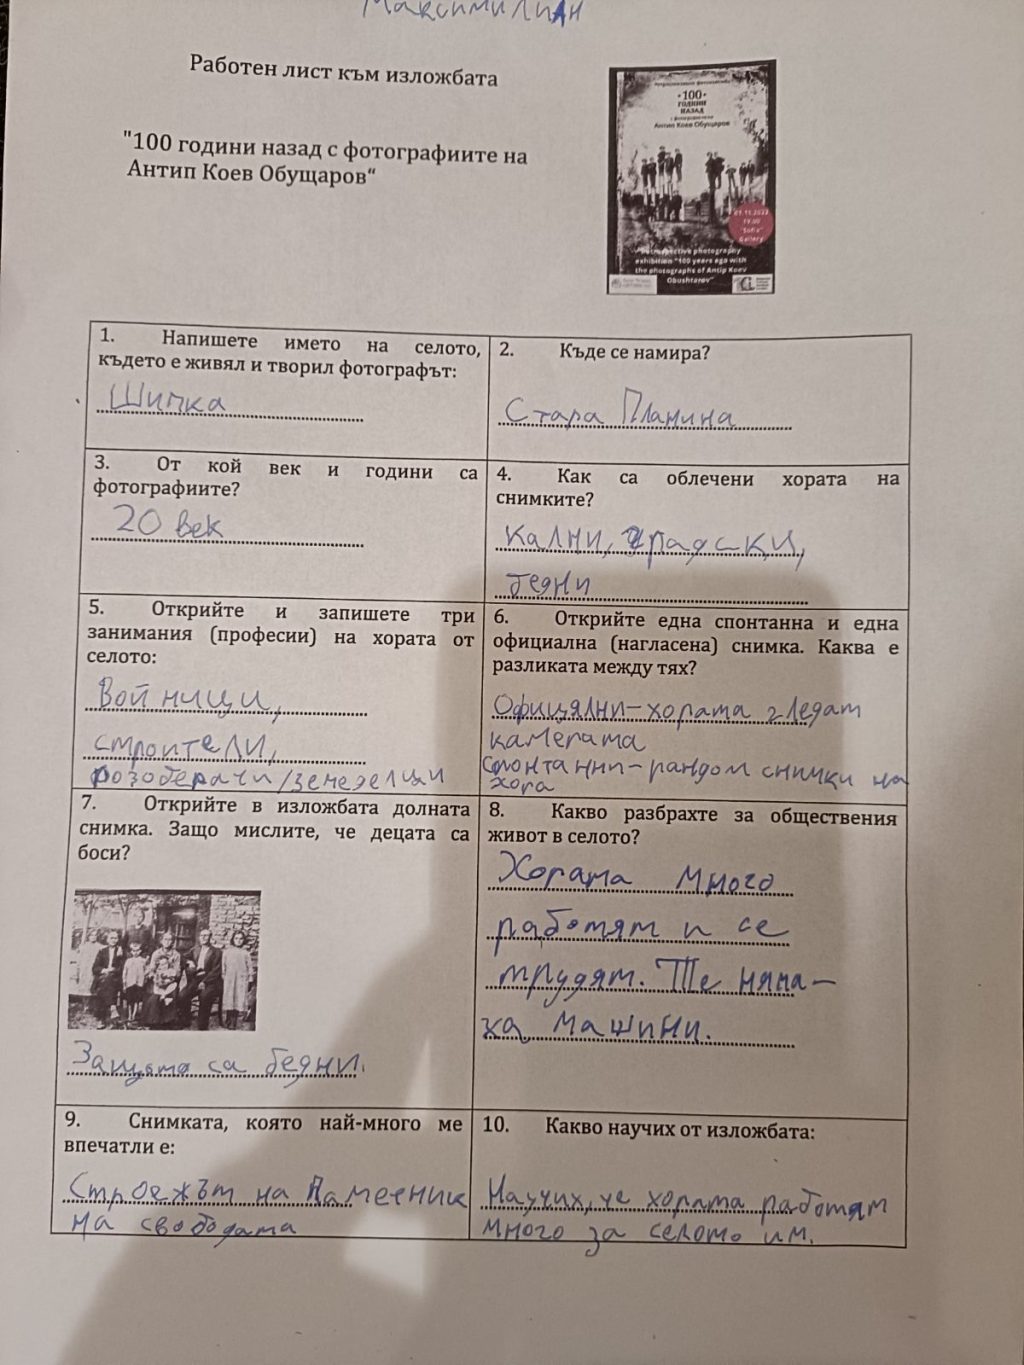 Максимилиан
Работен лист към изложбата
"100 години назад с фотографиите на
Антип Коев Обущаров“
•100•
ГОДИНИ
НАЗАД
с фотографиите на
Антип Коев Обущаров
01.11.2022
19.00
"Sofia"
Gallery
Retrospective photography
exhibition "100 years ago with
the photographs of Antip Koev
Obushtarov"
1. Напишете името на селото,
където е живял и творил фотографът:
Шипка
2. Къде се намира?
Стара Планина
3. От кой век и години са
фотографиите?
20 век
4. Как са облечени хората на
снимките?
кални, градски,
бедни
5. Открийте и запишете три
занимания (професии) на хората от
селото:
Войници,
строители,
розоберачи/земеделци
6. Открийте една спонтанна и една
официална (нагласена) снимка. Каква е
разликата между тях?
Официялни-хората гледат
камерата
Спонтанни-рандом снимки на
хора
7. Открийте в изложбата долната
снимка. Защо мислите, че децата са
боси?
Защото са бедни.
8. Какво разбрахте за обществения
живот в селото?
Хората много
работят и се
трудят. Те няма-
ха машини.
9. Снимката, която най-много ме
впечатли е:
Строежът на Паметник
на свободата
10. Какво научих от изложбата:
Научих, че хората работят
много за селото им.